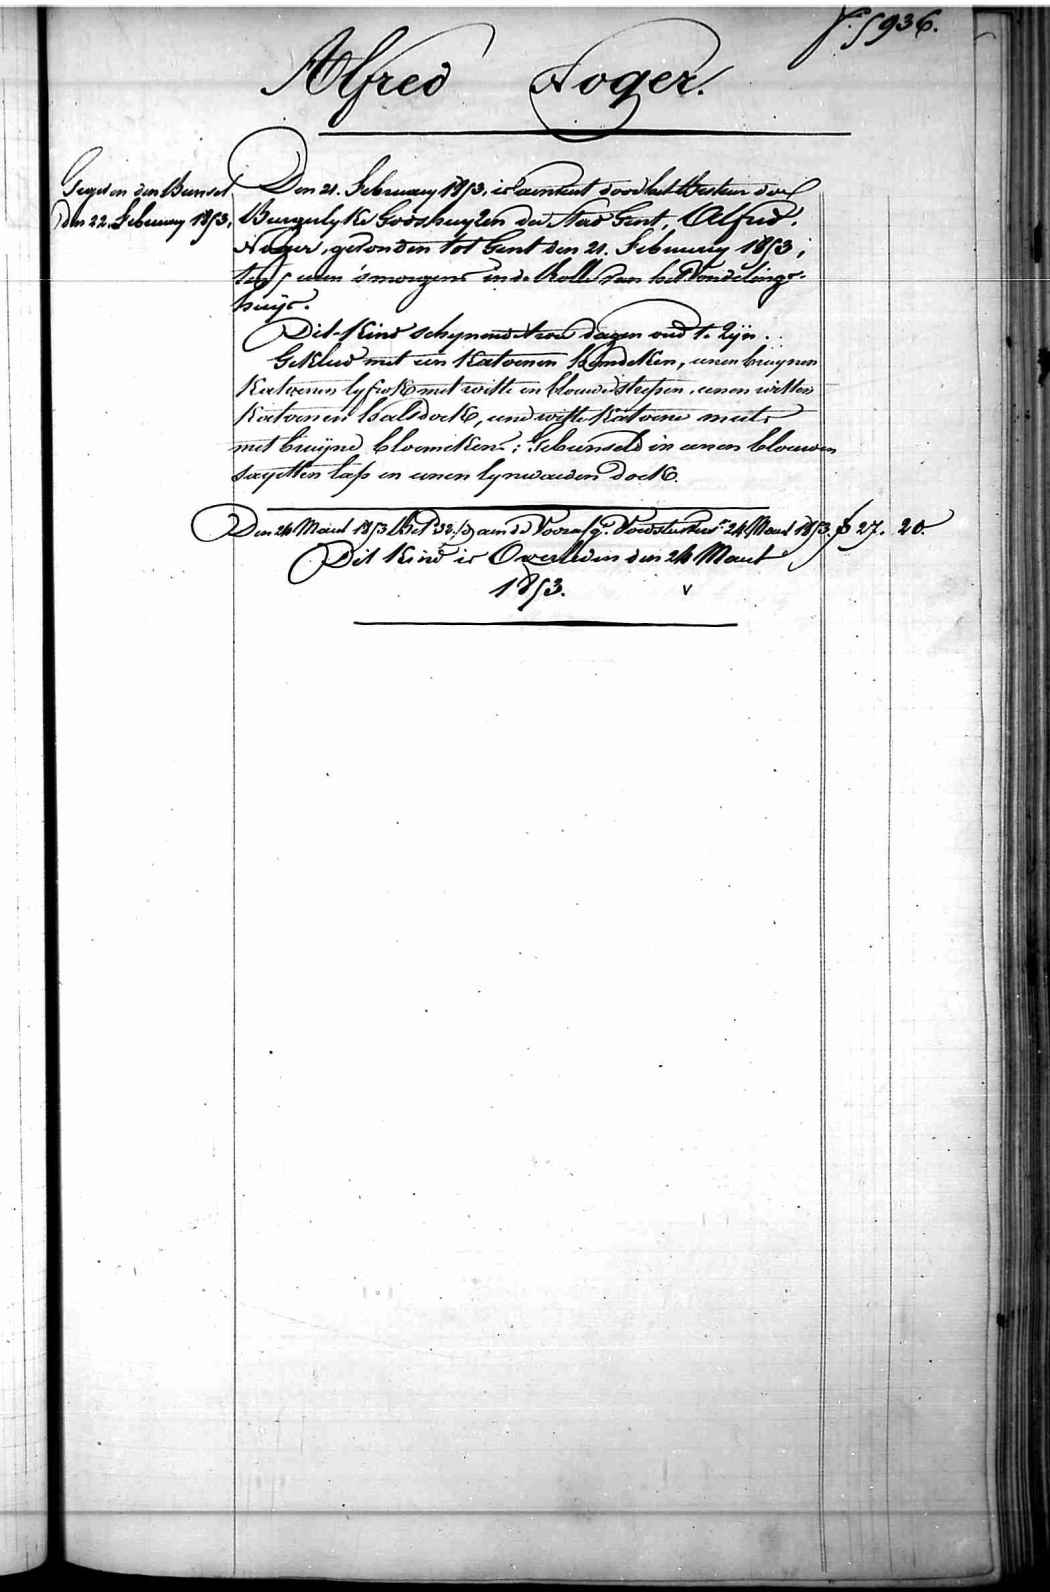 f.° 5936.
Alfred Noger.
Den 21. February 1853. is aenveert door het Bestuer der
Burgerlyke Godshuyzen der Stad Gent, Alfred.
Noger, gevonden tot Gent den 21. February 1853,
ten 5 uren 'smorgens in de Rolle van het Vondelings-
huys.
Dit Kind schynende twee dagen oud te zyn.
Gekleed met een Katoenen hemdeken, eenen bruynen
Katoenen lyfrok met witte en blauwe strepen, eenen witten
Katoenen halsdoek, eene witte Katoene muts
met bruyne bloemekens; Gebunseld in eenen blauwen
sayetten lap en eenen lynwaeden doek.
Gegeven den Bunsel
den 22. February 1853.
Den 24 Maert 1853 aen de 24 Maert 1853. 27. 20.
Dit Kind is Overleden den 24 Maert
1853.